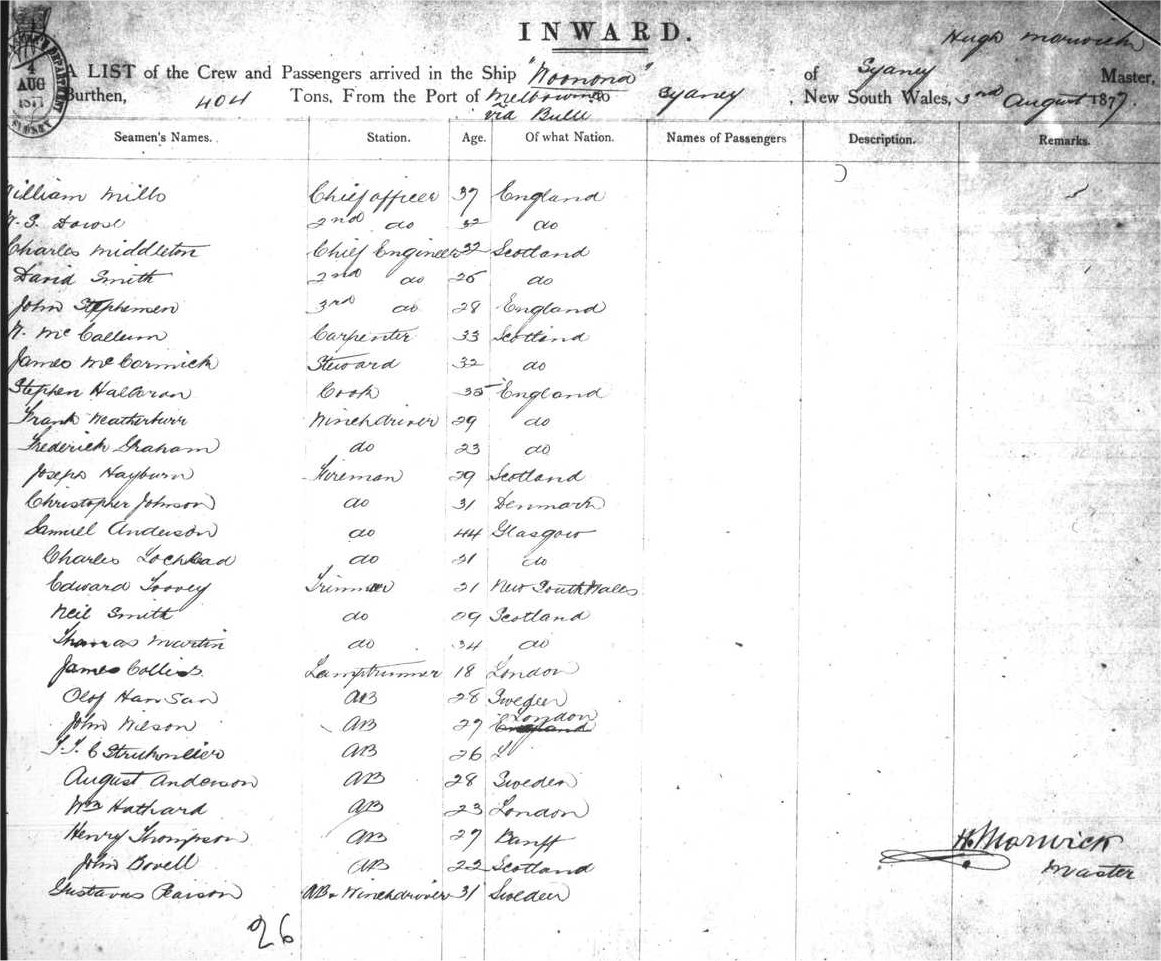 INWARD.
Hugh Marwick
4
AUG
1877
SYDNEY
A LIST of the Crew and Passengers arrived in the Ship "Woonona" of Sydney Master,
Burthen, 404 Tons, From the Port of Melbourne to Sydney, New South Wales, 3rd August 1877.
via Bulli
Seamen's Names. Station. Age. Of what Nation. Names of Passengers Description. Remarks.
William Mills Chief officer 37 England
2nd do 32 do
Charles Middleton Chief Engineer 32 Scotland
David Smith 2nd do 26 do
John Stephensen 3rd do 28 England
McCallum Carpenter 33 Scotland
James McCormick Steward 32 do
Stephen Halloran Cook 35 England
Frank Weatherburr Winchdriver 29 do
Frederick Graham do 23 do
Joseph Hayburn Fireman 29 Scotland
Christopher Johnson do 31 Denmark
Samuel Anderson do 44 Glasgow
Charles Lochhead do 21 do
Edward Toovey Trimmer 21 New South Wales
Neil Smith do 29 Scotland
Thomas Martin do 34 do
James Collins Lamptrimmer 18 London
Olof Hansan AB 28 Sweden
John Wilson AB 27 London
AB 26
August Anderson AB 28 Sweden
Wm Hathard AB 23 London
Henry Thompson AB 27 Banff
John Bovell AB 22 Scotland
Gustavus AB & Winchdriver 31 Sweden
H. Marwick
Master
26